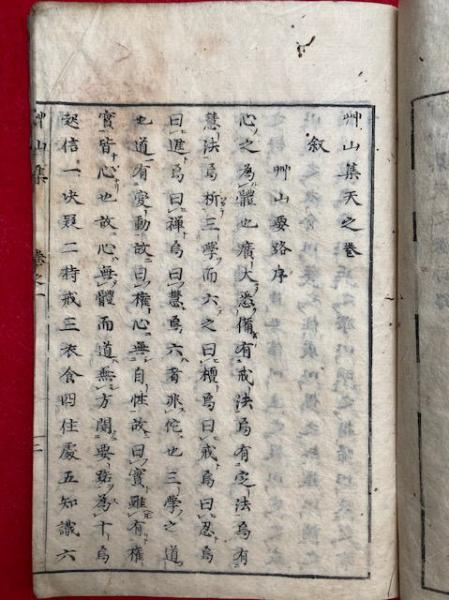 艸山集天之巻
叙
艸山要路序
心之為體也廣大悉備有戒法焉有定法焉有
慧法焉析三學而六之曰檀焉曰戒焉曰忍焉
曰進焉曰禪焉曰慧焉六者非佗也三學之道
也道有變動故曰權心無自性故曰實雖有權
實皆心也故心無體而道無方開要路為十焉
起信一決疑二持戒三衣食四住處五知識六
艸山集
巻之一